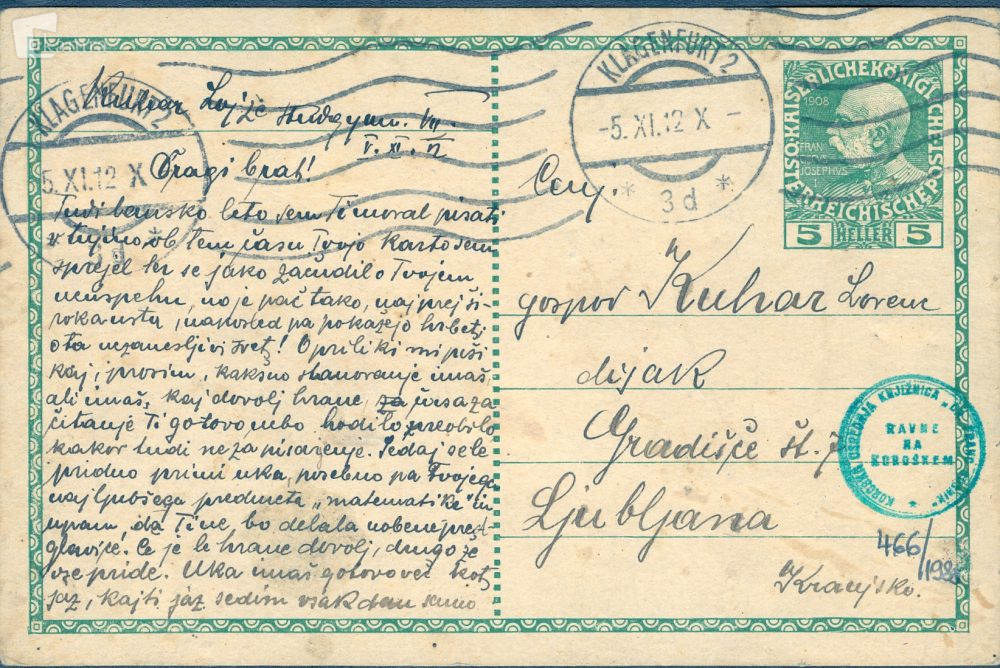 Kuhar Lojze stud. gymn. VII.
V. XI. 12
Dragi brat!
Tudi leto sem Ti moral pisati
v ob tem času Tvojo karto sem
sprejel ter se jako začudil o Tvojem
neuspehu, no je pač tako, najprej ši-
roka usta, naposled pa pokažejo hrbet,
o ta nezanesljivi svet! O priliki mi piši
kaj, prosim, kakšno stanovanje imaš,
ali imaš kaj dovolj hrane, za
čitanje Ti gotovo ne bo hodilo preobilo
kakor tudi ne za pisarjenje. Sedaj se le
pridno primi uka, posebno pa Tvojega
najljubšega predmeta „matematike" in
upam, da Ti ne bo delala nobene pre-
glavice. Če je le hrane dovolj, drugo že
vse pride. Uka imaš gotovo več kot
jaz, kajti jaz sedim vsak dan samo
KLAGENFURT 2
5. XI. 12 X
3 d
KLAGENFURT 2
-5. XI. 12 X -
* 3 d *
KAISERLICHEKÖNIGLICHE
ÖSTERREICHISCHEPOST
1908
FRAN
IOSEPHVS
5 HELLER 5
Cenj.
gospod Kuhar Lorenc
dijak
Gradišče št. 7
Ljubljana
Kranjsko.
RAVNE
NA
KOROŠKEM
466/